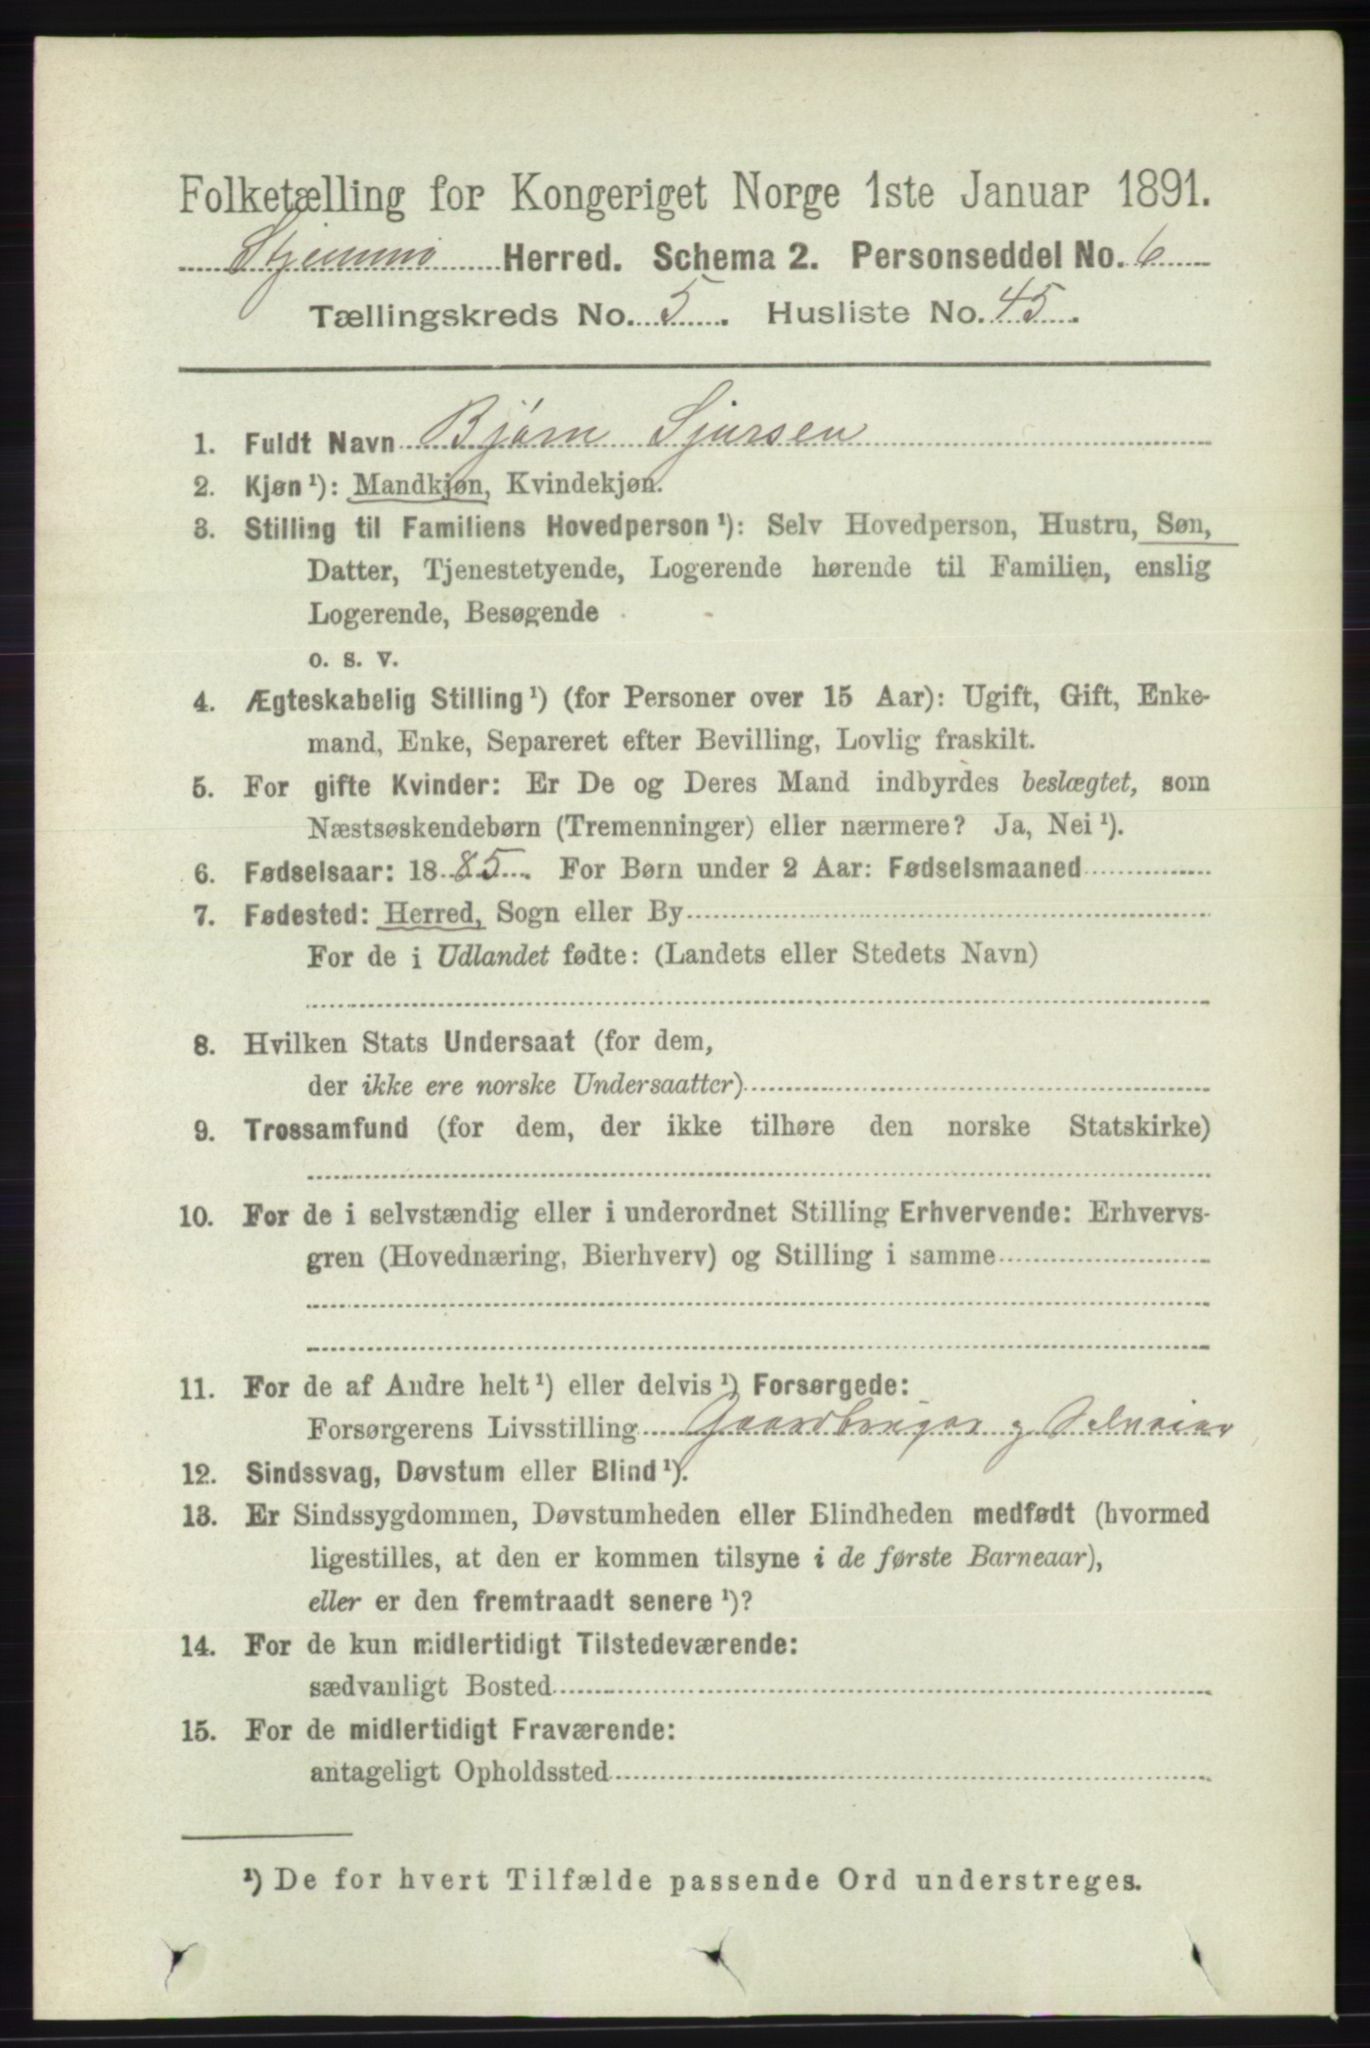 Folketælling for Kongeriget Norge 1ste Januar 1891.
Herred. Schema 2. Personseddel No. 6
Tællingskreds No. 5. Husliste No. 45.
1. Fuldt Navn Bjørn Sjursen
2. Kjøn¹): Mandkjøn, Kvindekjøn.
3. Stilling til Familiens Hovedperson¹): Selv Hovedperson, Hustru, Søn,
Datter, Tjenestetyende, Logerende hørende til Familien, enslig
Logerende, Besøgende
o. s. v.
4. Ægteskabelig Stilling¹) (for Personer over 15 Aar): Ugift, Gift, Enke-
mand, Enke, Separeret efter Bevilling, Lovlig fraskilt.
5. For gifte Kvinder: Er De og Deres Mand indbyrdes beslægtet, som
Næstsøskendebørn (Tremenninger) eller nærmere? Ja, Nei¹).
6. Fødselsaar: 1885. For Børn under 2 Aar: Fødselsmaaned
7. Fødested: Herred, Sogn eller By
For de i Udlandet fødte: (Landets eller Stedets Navn)
8. Hvilken Stats Undersaat (for dem,
der ikke ere norske Undersaatter)
9. Trossamfund (for dem, der ikke tilhøre den norske Statskirke)
10. For de i selvstændig eller i underordnet Stilling Erhvervende: Erhvervs-
gren (Hovednæring, Bierhverv) og Stilling i samme
11. For de af Andre helt¹) eller delvis¹) Forsørgede:
Forsørgerens Livsstilling Gaardbruger og Selveier
12. Sindssvag, Døvstum eller Blind¹).
13. Er Sindssygdommen, Døvstumheden eller Blindheden medfødt (hvormed
ligestilles, at den er kommen tilsyne i de første Barneaar),
eller er den fremtraadt senere¹)?
14. For de kun midlertidigt Tilstedeværende:
sædvanligt Bosted
15. For de midlertidigt Fraværende:
antageligt Opholdssted
¹) De for hvert Tilfælde passende Ord understreges.